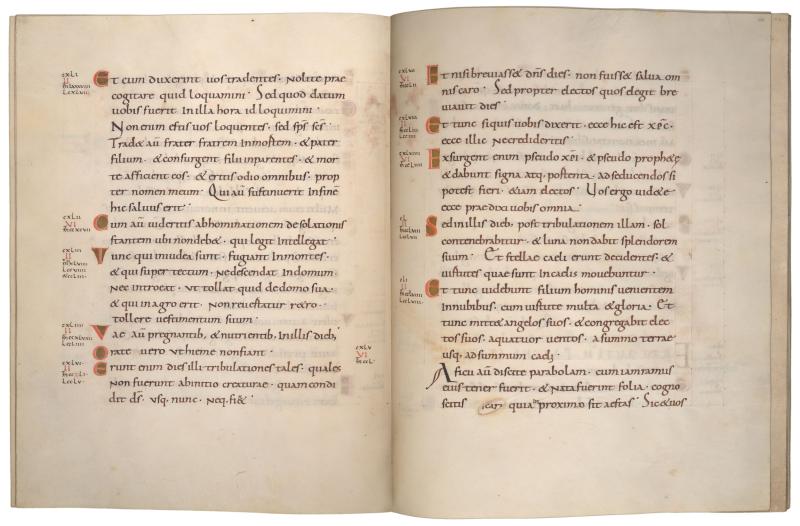 Et cum duxerint uos tradentes · Nolite prae
cogitare quid loquamini · Sed quod datum
uobis fuerit In illa hora id loquimini ·
Non enim estis uos loquentes · sed sps scs ·
Tradet aū frater fratrem In mortem · & pater
filium · & consurgent filii in parentes · & mor
te afficient eos · & eritis odio omnibus · prop
ter nomen meum · Qui aū sustinuerit In finē
hic saluus erit ·
Cum aū uideritis abhominationem desolationis
stantem ubi non deb& · qui legit Intellegat ·
Tunc qui in iudea sunt · fugiant In montes ·
& qui super tectum · Ne descendat In domum ·
Nec introeat · Ut tollat quid de domo sua ·
& qui in agro erit · Non reuertatur r&ro ·
tollere uestimentum suum ·
Vae aū pregnantib; & nutrientib; In illis dieb;
Orate uero Ut hieme non fiant ·
Erunt enim dies illi tribulationes tales · quales
Non fuerunt ab initio creaturae · quam condi
dit ds · usq; nunc · Neq; fi& ·
Et nisi breuiass& dns dies · non fuiss& salua om
nis caro · Sed propter electos quos elegit bre
uiauit dies ·
Et tunc si quis uobis dixerit · ecce hic est xpc ·
ecce illic Ne credideritis ·
Exsurgent enim pseudo xpi · & pseudo proph&ę
& dabunt signa atq; portenta · ad seducendos si
potest fieri · &iam electos · Uos ergo uid&e ·
ecce praedixi uobis omnia ·
Sed in illis dieb; post tribulationem illam · sol
contenebrabitur · & luna non dabit splendorem
suum · Et stellae caeli erunt decidentes · &
uirtutes quae sunt in caelis mouebuntur ·
Et tunc uidebunt filium hominis uenientem
In nubibus · cum uirtute multa & gloria · Et
tunc mitt& angelos suos · & congregabit elec
tos suos · a quatuor uentos · a summo terrae
usq; ad summum caeli ·
A ficu aū discite parabolam · cum iam ramus
eius tener fuerit · & Nata fuerint folia · cogno
scitis quia in proximo sit aestas · Sic & uos